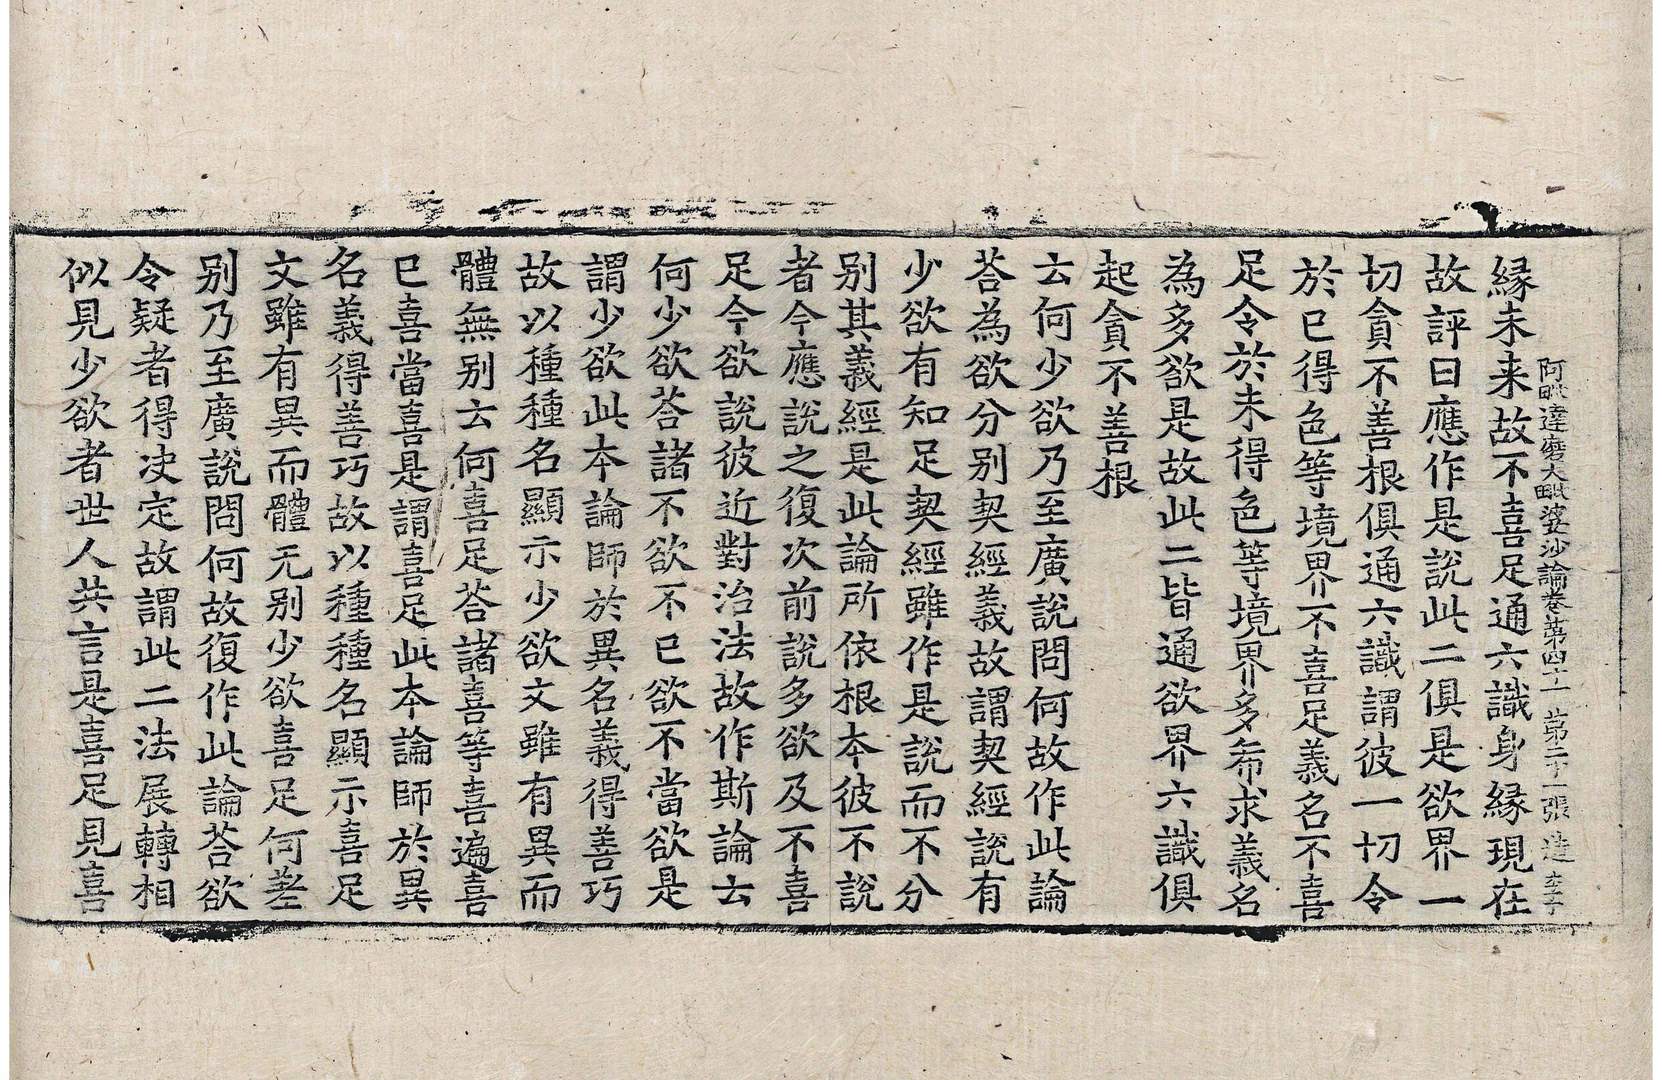 阿毗達磨大毗婆沙論卷第四十一 第二十一張 造
縁未来故不喜足通六識身縁現在
故評曰應作是說此二俱是欲界一
切貪不善根俱通六識謂彼一切令
於已得色等境界不喜足義名不喜
足令於未得色等境界多希求義名
為多欲是故此二皆通欲界六識俱
起貪不善根
云何少欲乃至廣說問何故作此論
荅為欲分别契經義故謂契經說有
少欲有知足契經雖作是說而不分
别其義經是此論所依根本彼不說
者今應說之復次前說多欲及不喜
足今欲說彼近對治法故作斯論云
何少欲荅諸不欲不已欲不當欲是
謂少欲此本論師於異名義得善巧
故以種種名顯示少欲文雖有異而
體無别云何喜足荅諸喜等喜遍喜
已喜當喜是謂喜足此本論師於異
名義得善巧故以種種名顯示喜足
文雖有異而體无别少欲喜足何差
别乃至廣說問何故復作此論荅欲
令疑者得决定故謂此二法展轉相
似見少欲者世人共言是喜足見喜